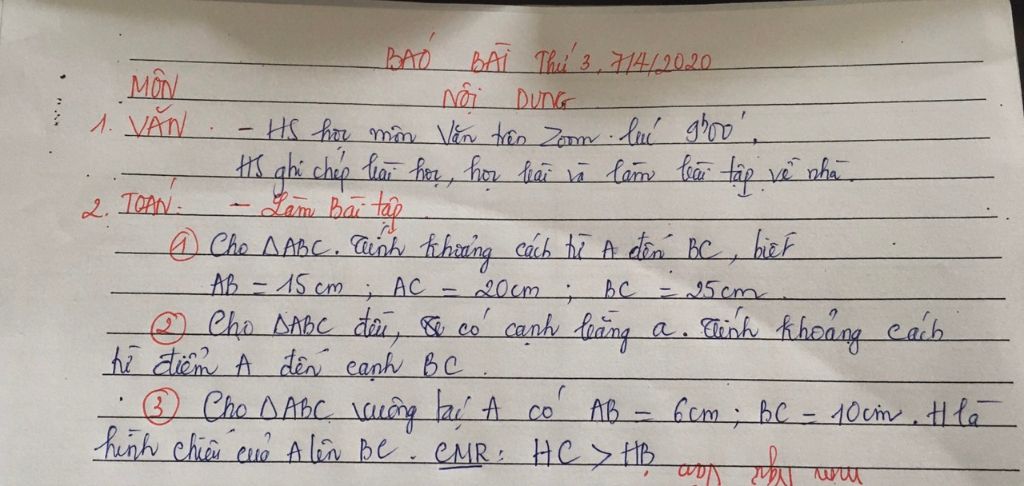 BÁO BÀI Thứ 3, 7/4/2020
MÔN NỘI DUNG
1. VĂN. - HS học môn Văn trên Zoom. lúc 9h00'.
HS ghi chép bài học, học bài và làm bài tập về nhà.
2. TOÁN: - Làm Bài tập
① Cho △ABC. Tính khoảng cách từ A đến BC, biết
AB = 15cm ; AC = 20cm ; BC = 25cm.
② Cho △ABC đều, có cạnh bằng a. Tính khoảng cách
từ điểm A đến cạnh BC.
③ Cho △ABC vuông tại A có AB = 6cm ; BC = 10cm. H là
hình chiếu của A lên BC. CMR: HC > HB